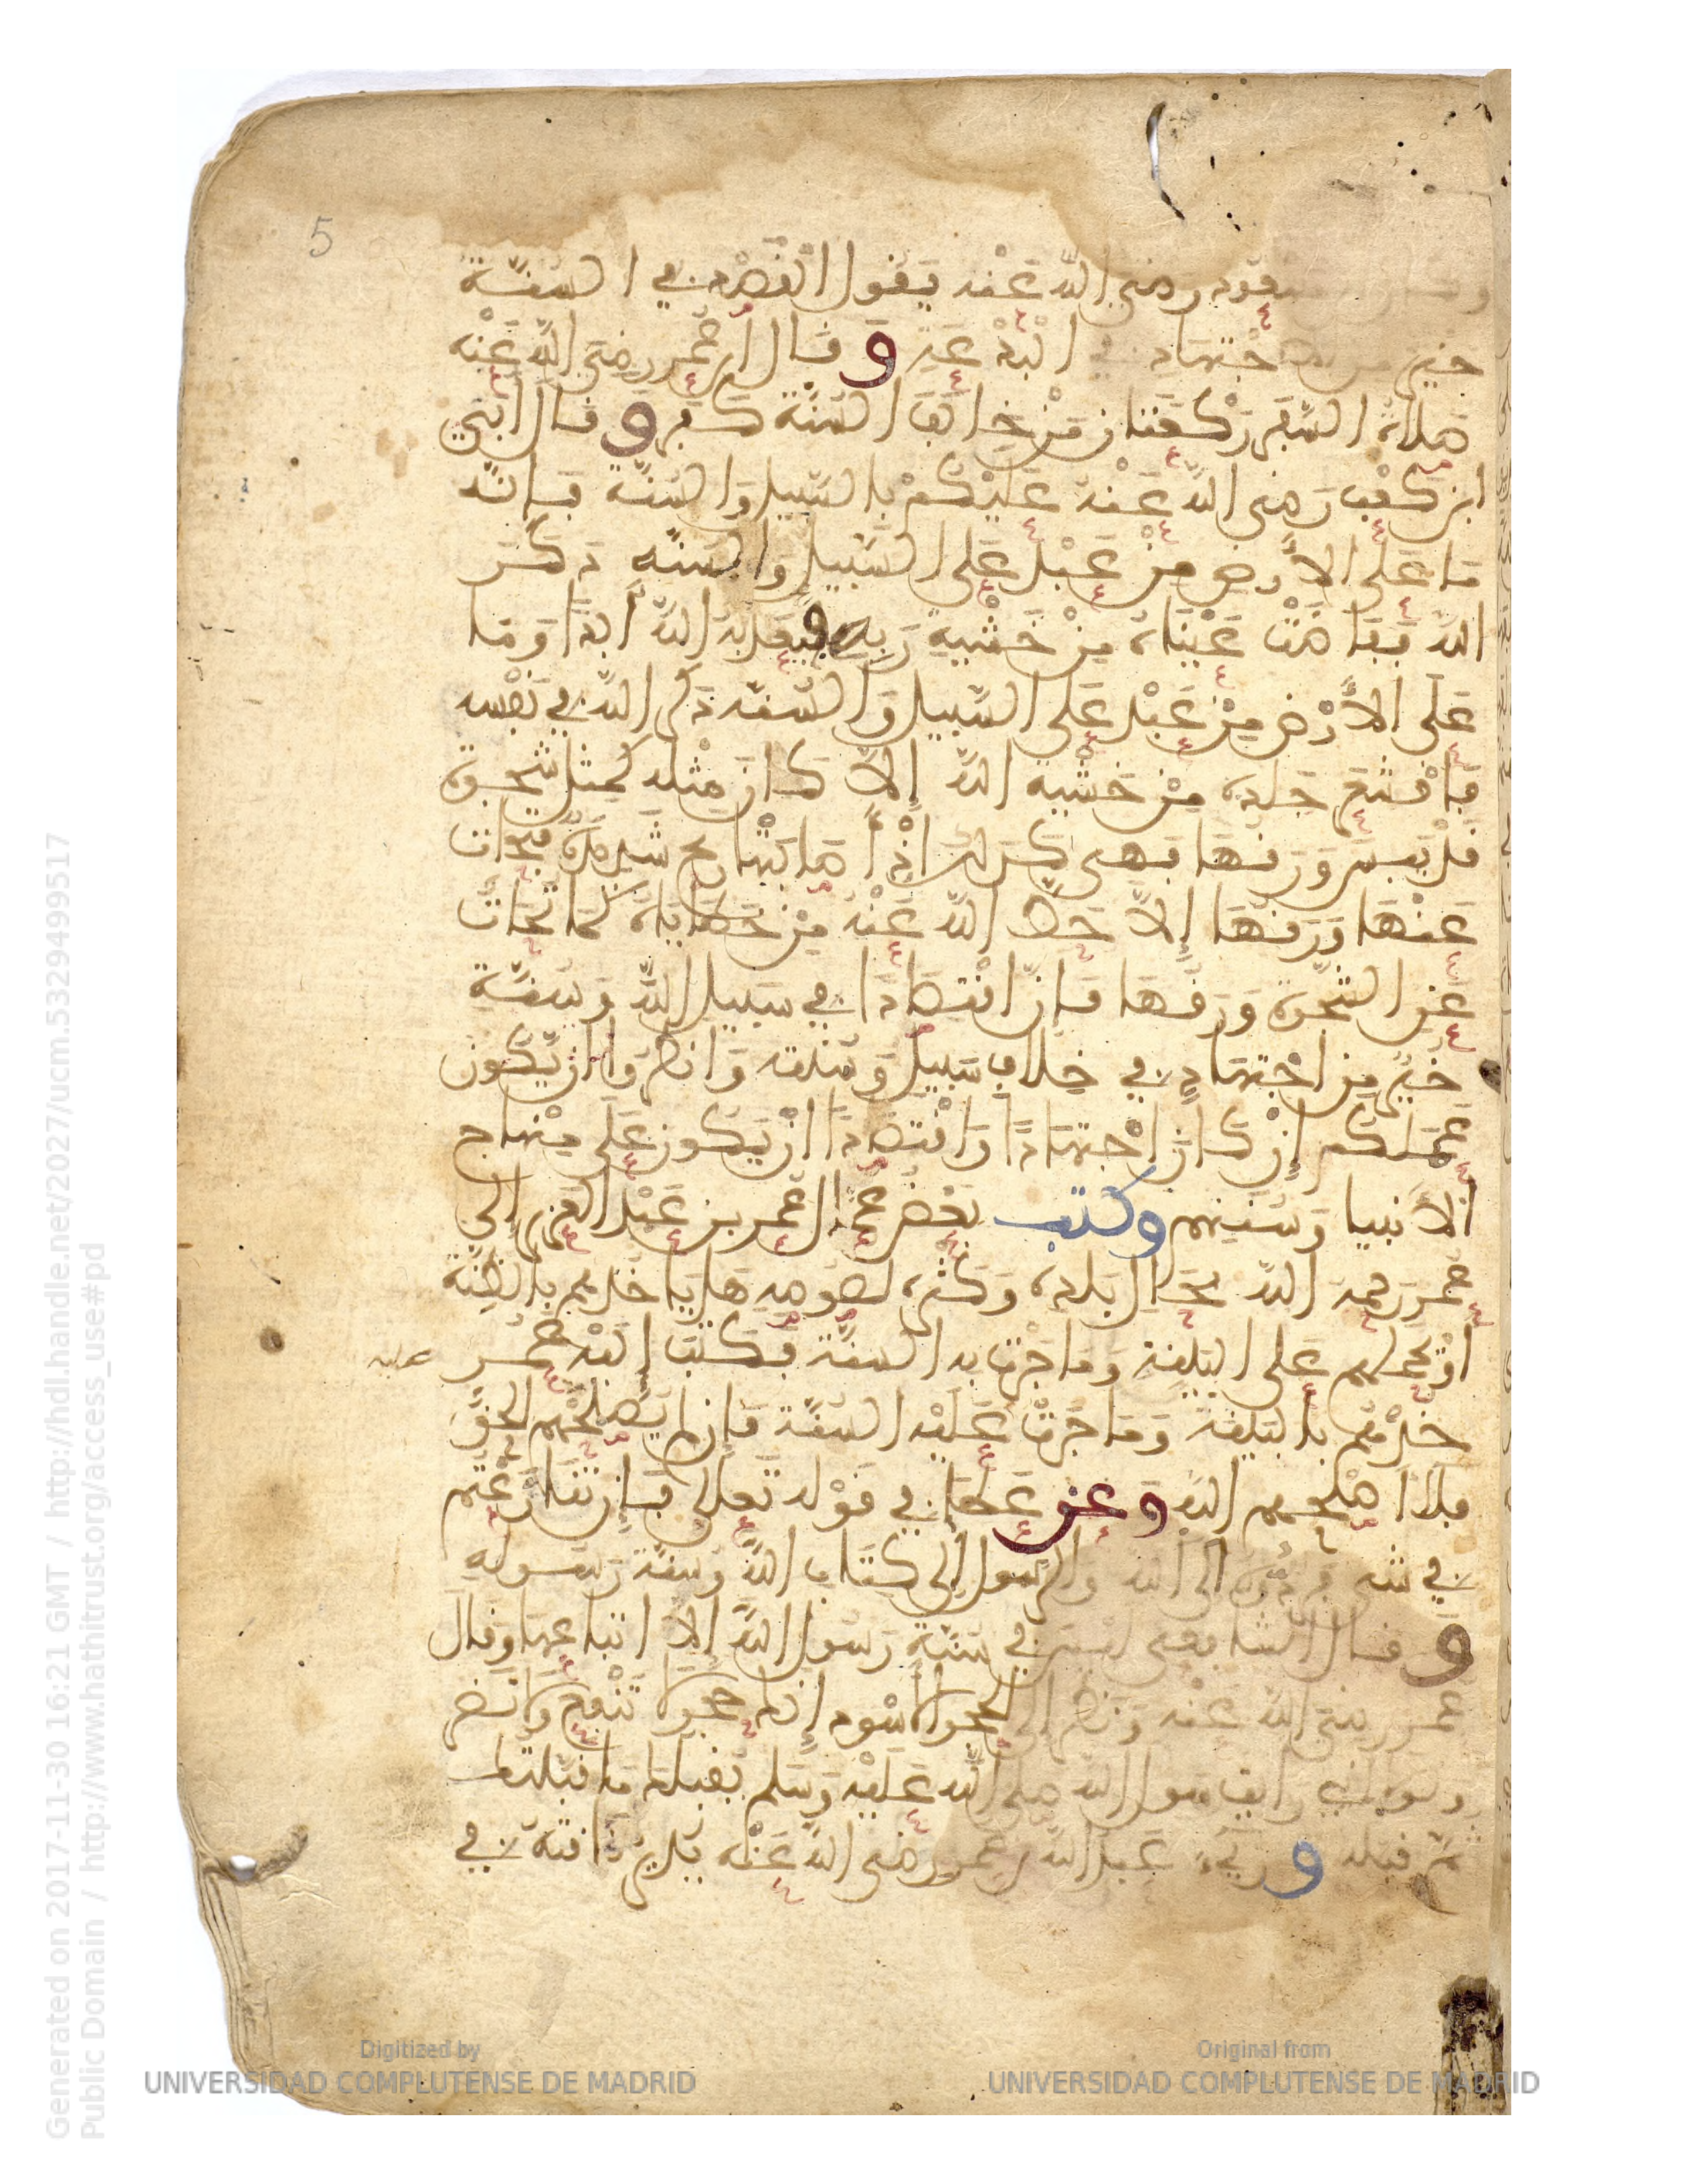 5
مسعود رضي الله عنه يقول القصد في السنة
خير من اجتهاد في البدعة وقال ابن عمر رضي الله عنه
صلاة السفر ركعتان من خالف السنة كفر وقال أبي
ابن كعب رضي الله عنه عليكم بالسبيل والسنة فإنه
ما على الأرض من عبد على السبيل والسنة ذكر
الله ففاضت عيناه من خشية ربه فيعذبه الله أبدا وما
على الأرض من عبد على السبيل والسنة ذكر الله في نفسه
فاقشعر جلده من خشية الله إلا كان مثله كمثل شجرة
قد يبس ورقها فهي كذلك إذ أصابتها ريح شديدة فتحات
عنها ورقها إلا حط الله عنه من خطاياه كما تحات
عن الشجرة ورقها فإن اقتصادا في سبيل الله وسنة
خير من اجتهاد في خلاف سبيل وسنة وانظروا أن يكون
عملكم إن كان اجتهادا واقتصادا أن يكون على منهاج
الأنبيا وسنتهم وكتب بعض عمال عمر بن عبد العزيز إلى
عمر رحمه الله بحال بلده وكثرة لصوصه هل ياخذهم بالظنة
أو يحملهم على البينة وما جرت به السنة فكتب إليه عمر
عليه
خذهم بالبينة وما جرت عليه السنة فإن لم يصلحهم الحق
فلا أصلحهم الله وعن عطا في قوله تعالى فإن تنازعتم
في شي فردوه إلى الله والرسول إلى كتاب الله وسنة رسوله
وقال الشافعي ليس في سنة رسول الله إلا اتباعها وقال
عمر رضي الله عنه ونظر إلى الحجر الأسود إنك حجر لا تنفع ولا تضر
ولولا أني رأيت رسول الله صلى الله عليه وسلم يقبلك ما قبلتك
ثم قبله وريء عبد الله بن عمر رضي الله عنه يدير ناقته في
Generated on 2017-11-30 16:21 GMT / http://hdl.handle.net/2027/ucm.5329499517
Public Domain / http://www.hathitrust.org/access_use#pd
Digitized by
UNIVERSIDAD COMPLUTENSE DE MADRID
Original from
UNIVERSIDAD COMPLUTENSE DE MADRID